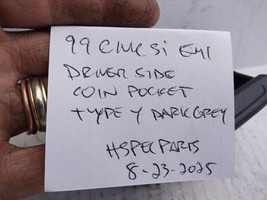 99 CIVIC Si EM1
DRIVER SIDE
COIN POCKET
TYPE Y DARK GREY
HSPEC PARTS
8-23-2025